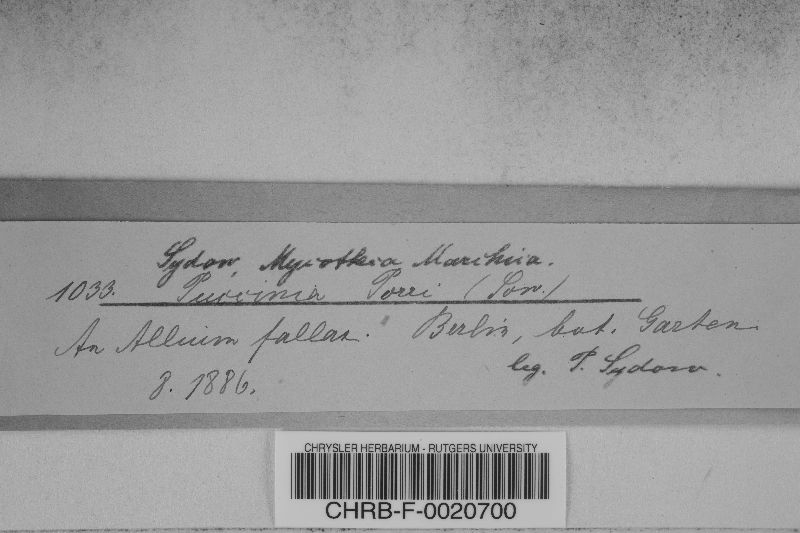 Sydow, Mycotheca Marchica.
1033. Puccinia Porri (Sow.)
An Allium fallax. Berlin, bot. Garten
leg. P. Sydow.
8. 1886.
CHRYSLER HERBARIUM - RUTGERS UNIVERSITY
CHRB-F-0020700